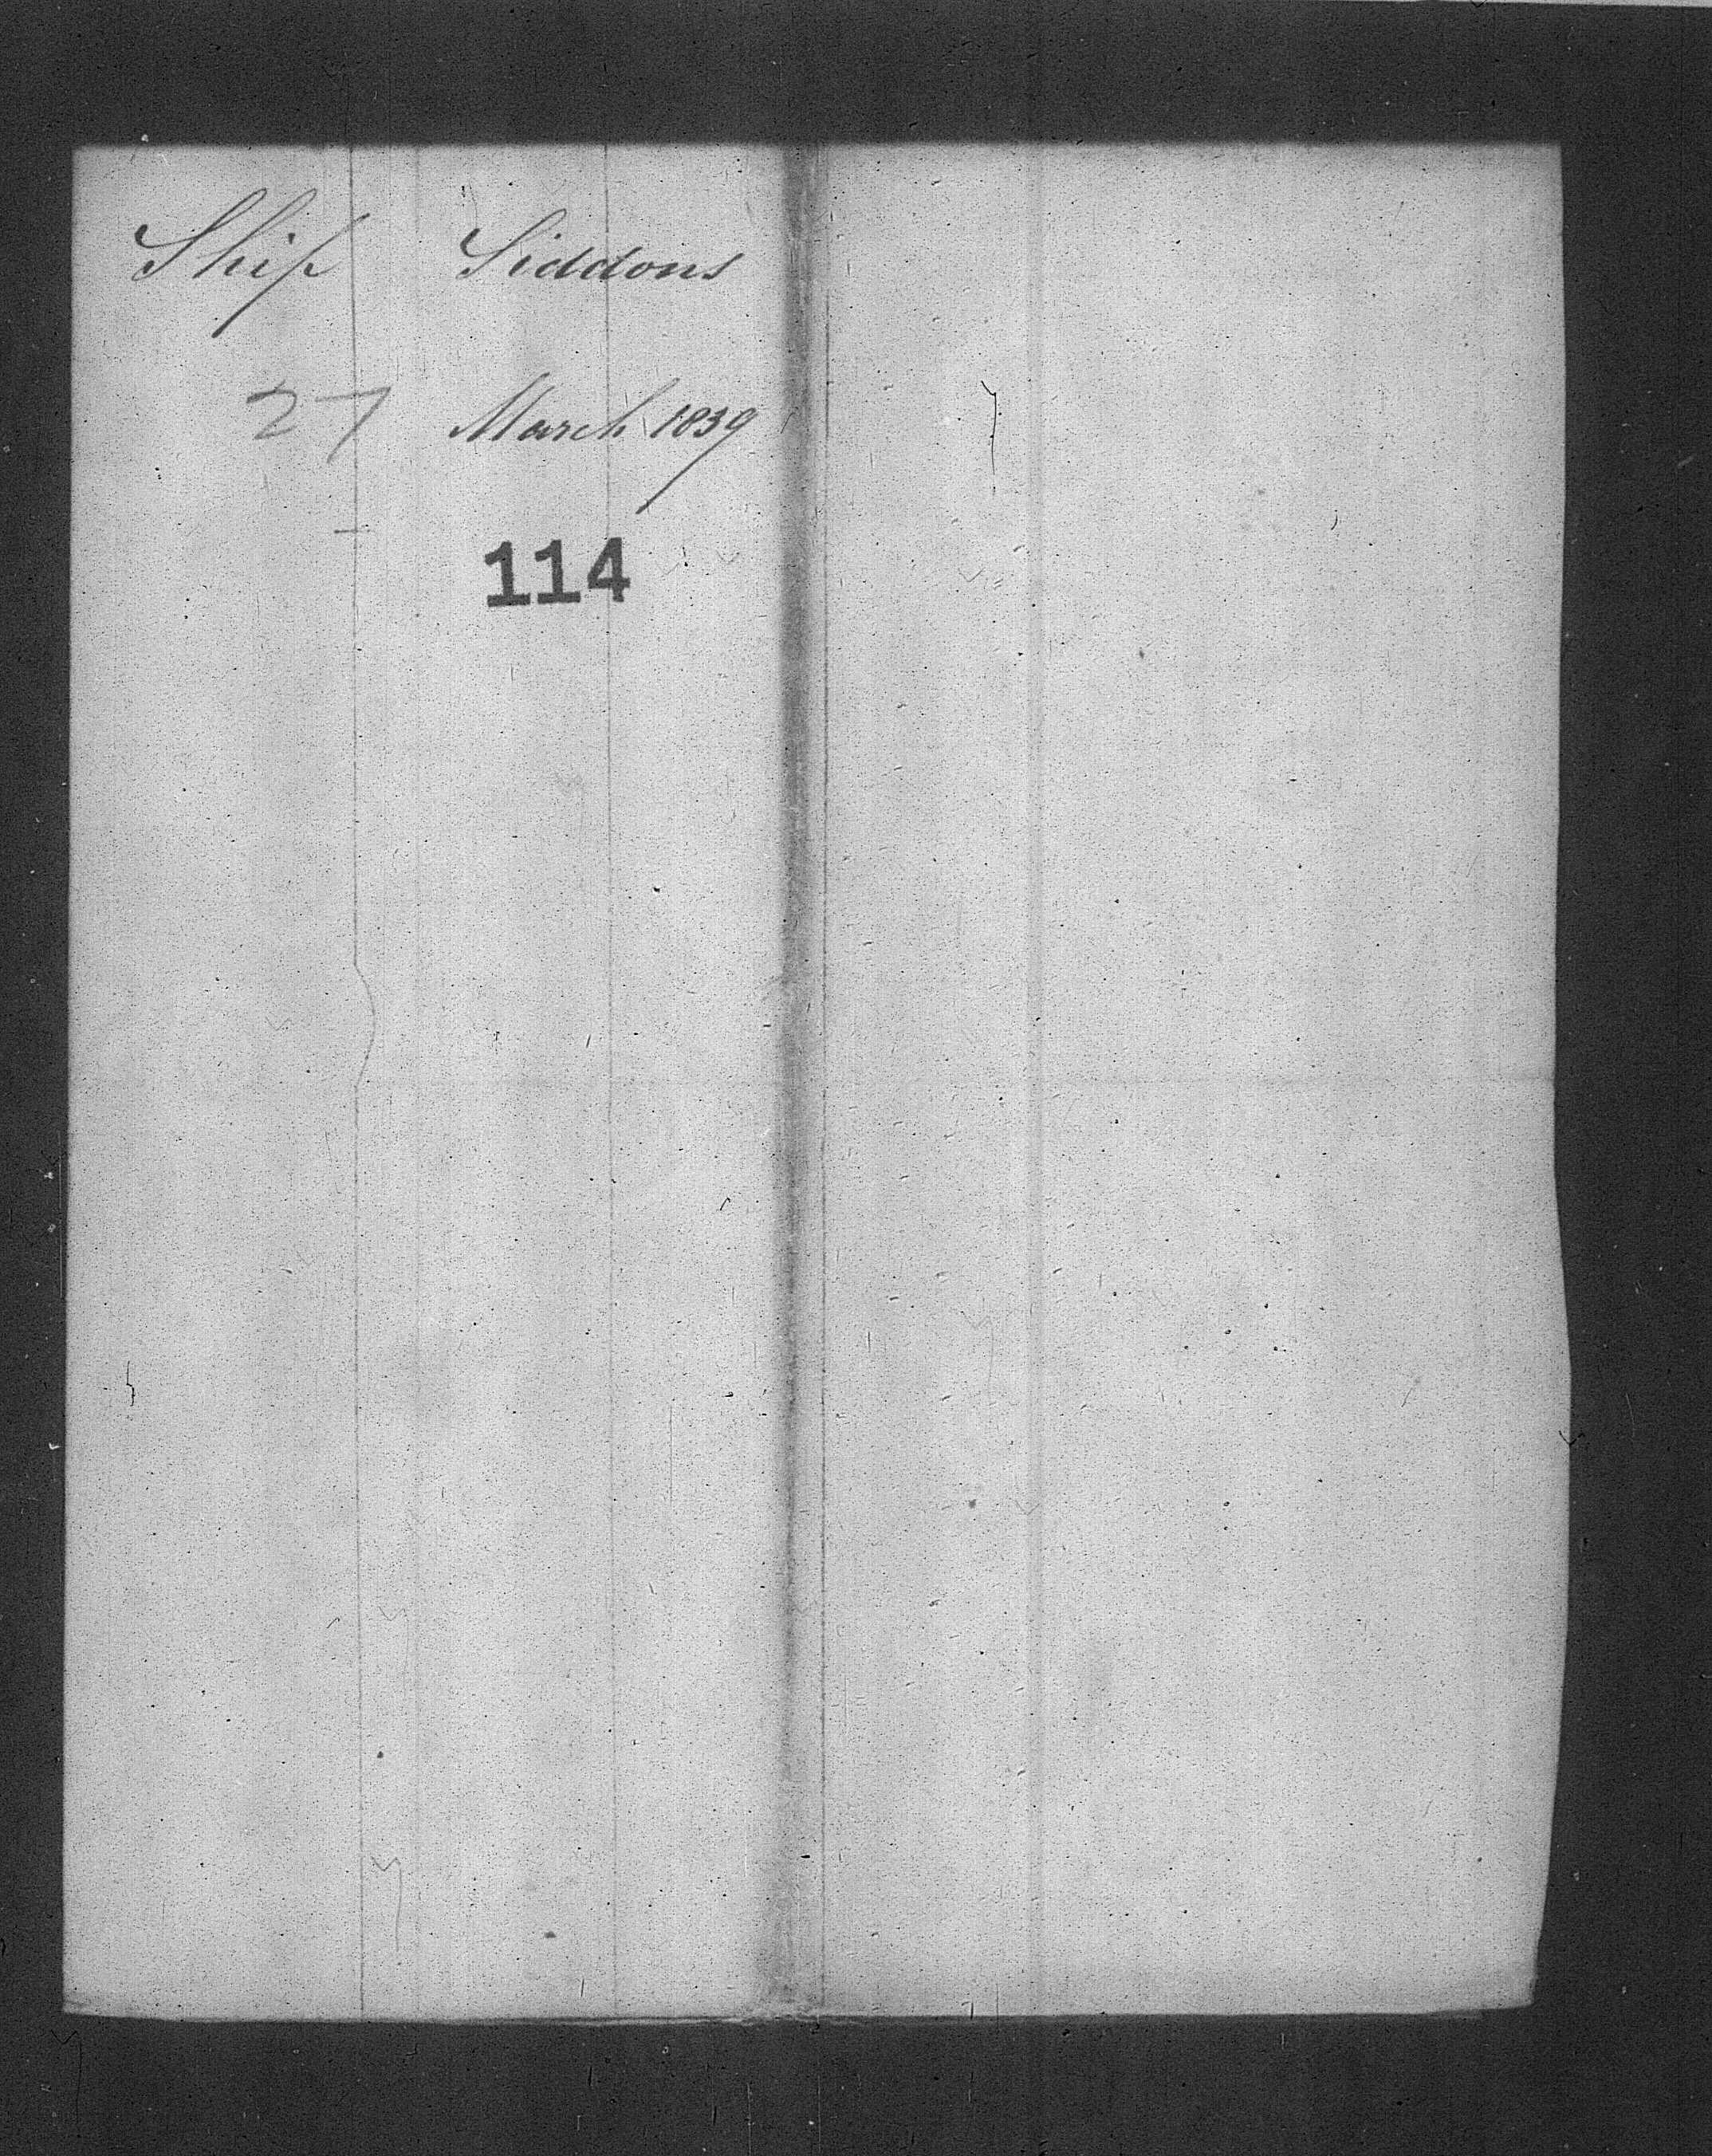 Ship Siddons
27 March 1839
114